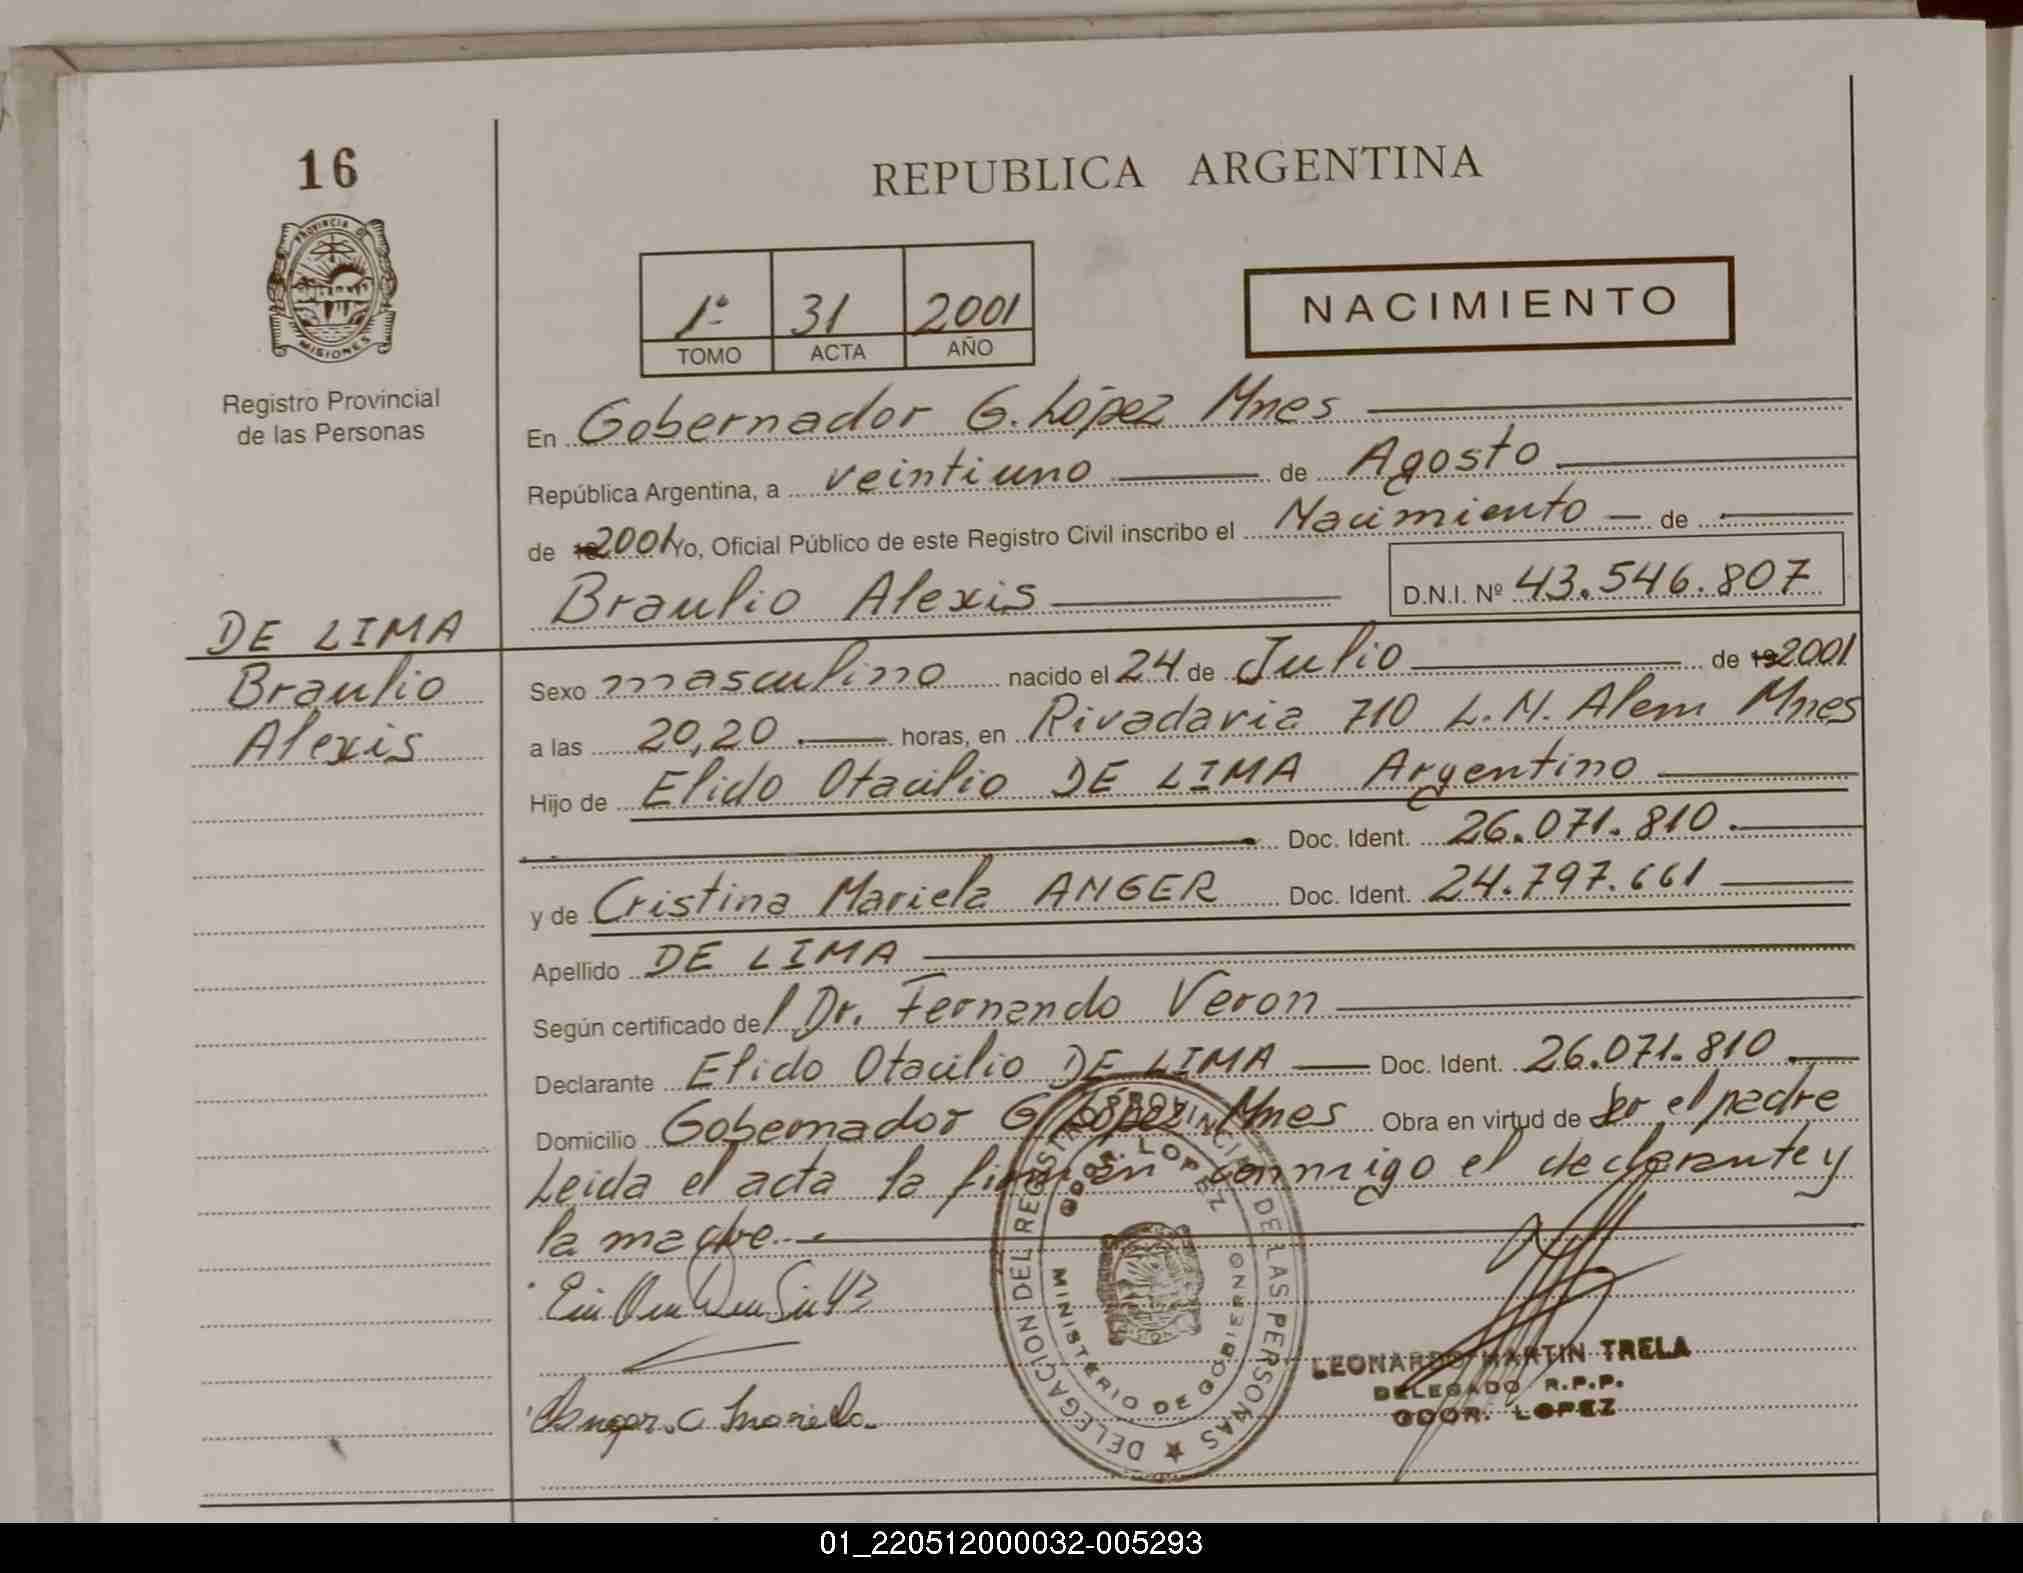 16
REPUBLICA ARGENTINA
PROVINCIA D
MISIONES
Registro Provincial
de las Personas
1º 31 2001
TOMO ACTA AÑO
NACIMIENTO
En Gobernador G. López Mnes
República Argentina, a veintiuno de Agosto
de 2001 Yo, Oficial Público de este Registro Civil inscribo el Nacimiento de
Braulio Alexis D.N.I. Nº 43.546.807
DE LIMA
Braulio
Alexis
Sexo masculino nacido el 24 de Julio de 2001
a las 20,20 horas, en Rivadavia 710 L.N. Alem Mnes
Hijo de Elido Otacilio DE LIMA Argentino
Doc. Ident. 26.071.810
y de Cristina Mariela ANGER Doc. Ident. 24.797.661
Apellido DE LIMA
Según certificado del Dr. Fernando Veron
Declarante Elido Otacilio DE LIMA Doc. Ident. 26.071.810
Domicilio Gobernador G López Mnes Obra en virtud de ser el padre
Leida el acta la firman conmigo el declarante y
la madre
DELEGACION DEL REGISTRO PROVINCIAL DE LAS PERSONAS
GDOR. LOPEZ
MINISTERIO DE GOBIERNO
LEONARDO MARTIN TRELA
DELEGADO R.P.P.
GDOR. LOPEZ
Anger. C Mariela
01_220512000032-005293